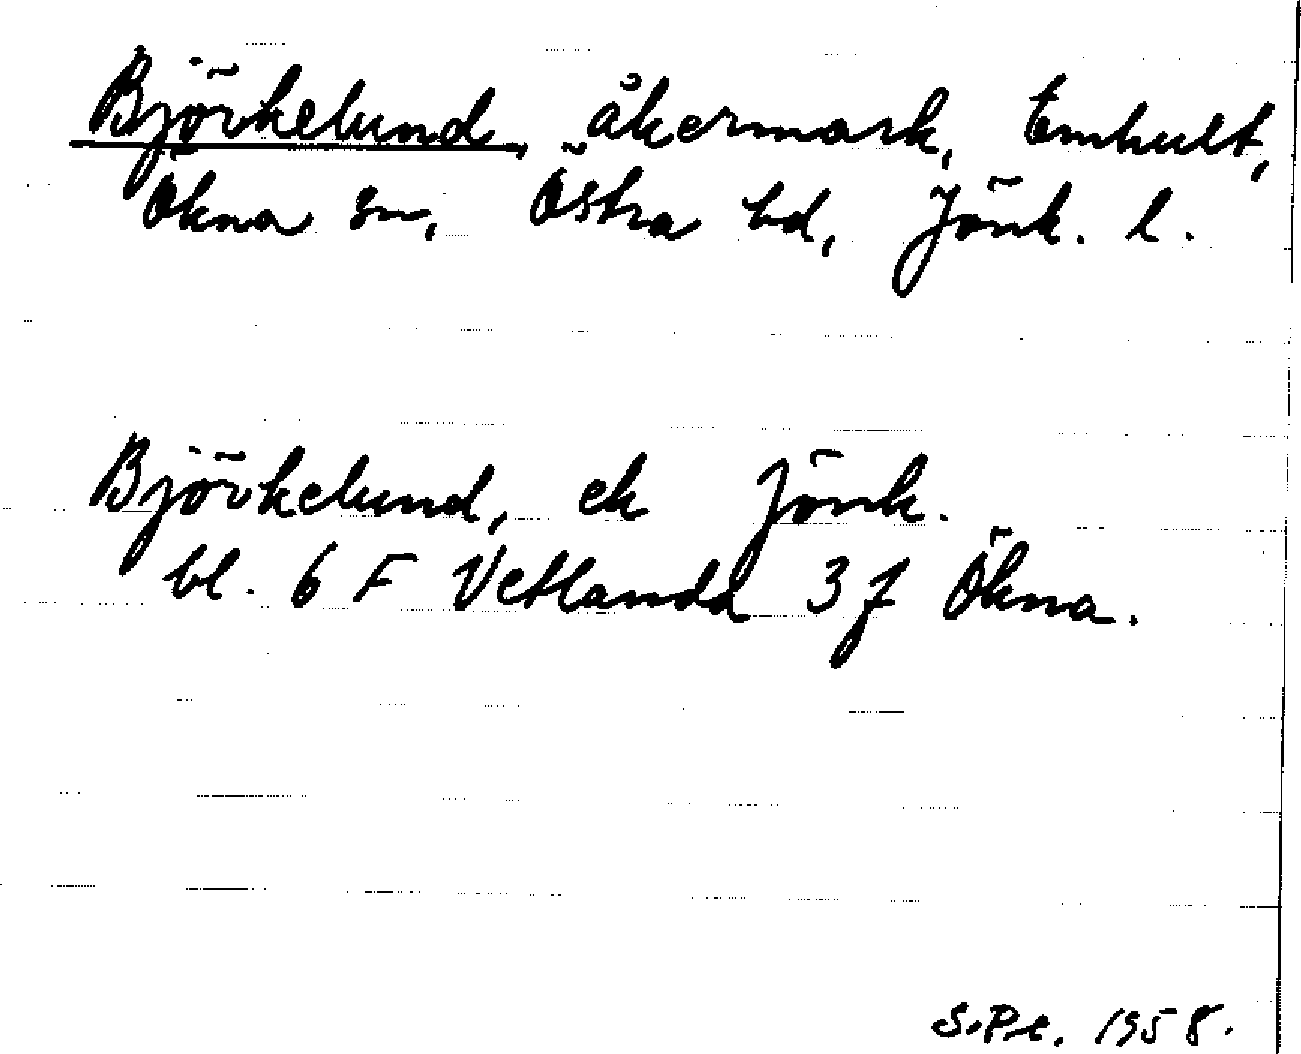 Björkelund, åkermark, Emhult,
Ökna sn, Östra hd, Jönk. l.
Björkelund, ek Jönk.
bl. 6 F Vetlanda 3 f Ökna.
S.Pt. 1958.